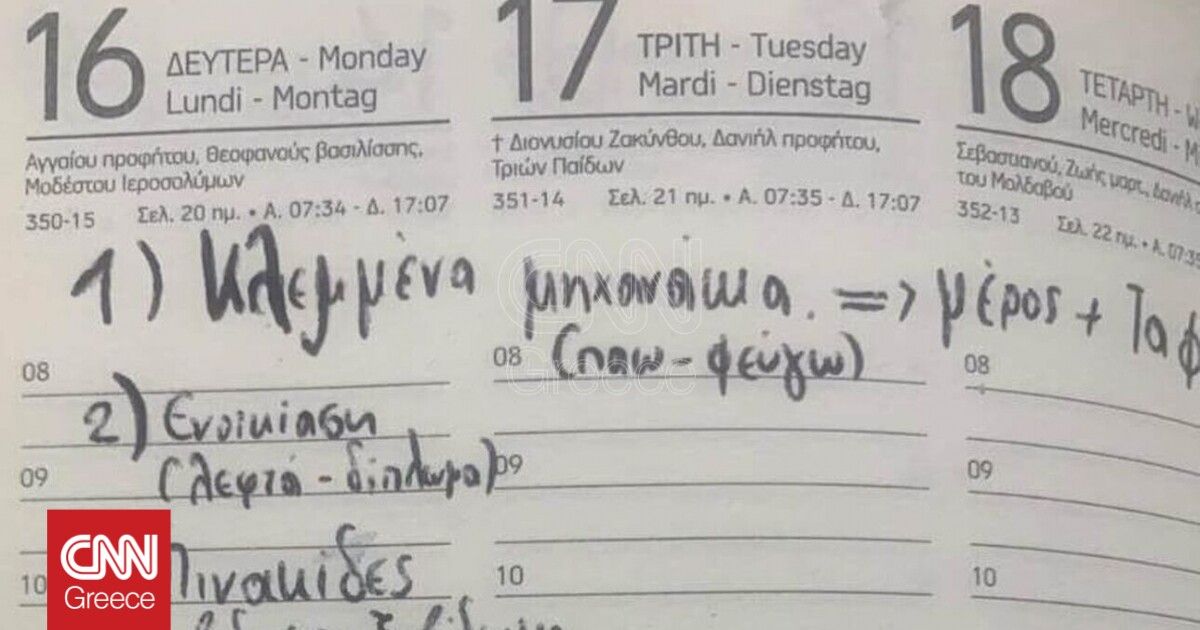 16 ΔΕΥΤΕΡΑ - Monday
Lundi - Montag
Αγγαίου προφήτου, Θεοφανούς βασιλίσσης,
Μοδέστου Ιεροσολύμων
350-15 Σελ. 20 ημ. • Α. 07:34 - Δ. 17:07
17 ΤΡΙΤΗ - Tuesday
Mardi - Dienstag
† Διονυσίου Ζακύνθου, Δανιήλ προφήτου,
Τριών Παίδων
351-14 Σελ. 21 ημ. • Α. 07:35 - Δ. 17:07
18 ΤΕΤΑΡΤΗ - W
Mercredi - M
Σεβαστιανού, Ζωής μαρτ., Δανιήλ
του Μολδαβού
352-13 Σελ. 22 ημ. • Α. 07:35
1) Κλεμμένα μηχανάκια. => μέρος + Τα φ
(πάω - φεύγω)
08 08 08
2) Ενοικίαση
(λεφτά - δίπλωμα)
09 09 09
Πινακίδες
10 10 10
CNN
Greece
CNN
Greece